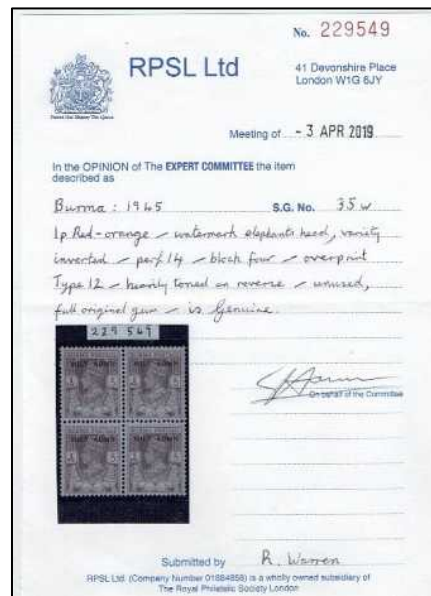 No. 229549
RPSL Ltd
41 Devonshire Place
London W1G 6JY
Meeting of - 3 APR 2019
In the OPINION of The EXPERT COMMITTEE the item
described as
Burma : 1945 S.G. No. 35w
1p Red-orange – watermark elephants head, variety
inverted – perf 14 – block four – overprint
Type 12 – heavily toned on reverse – unused,
full original gum – is Genuine.
229 549
MILY ADMN MILY ADMN
MILY ADMN MILY ADMN
On behalf of the Committee
Submitted by R. Warren
RPSL Ltd. (Company Number 01884858) is a wholly owned subsidiary of
The Royal Philatelic Society London